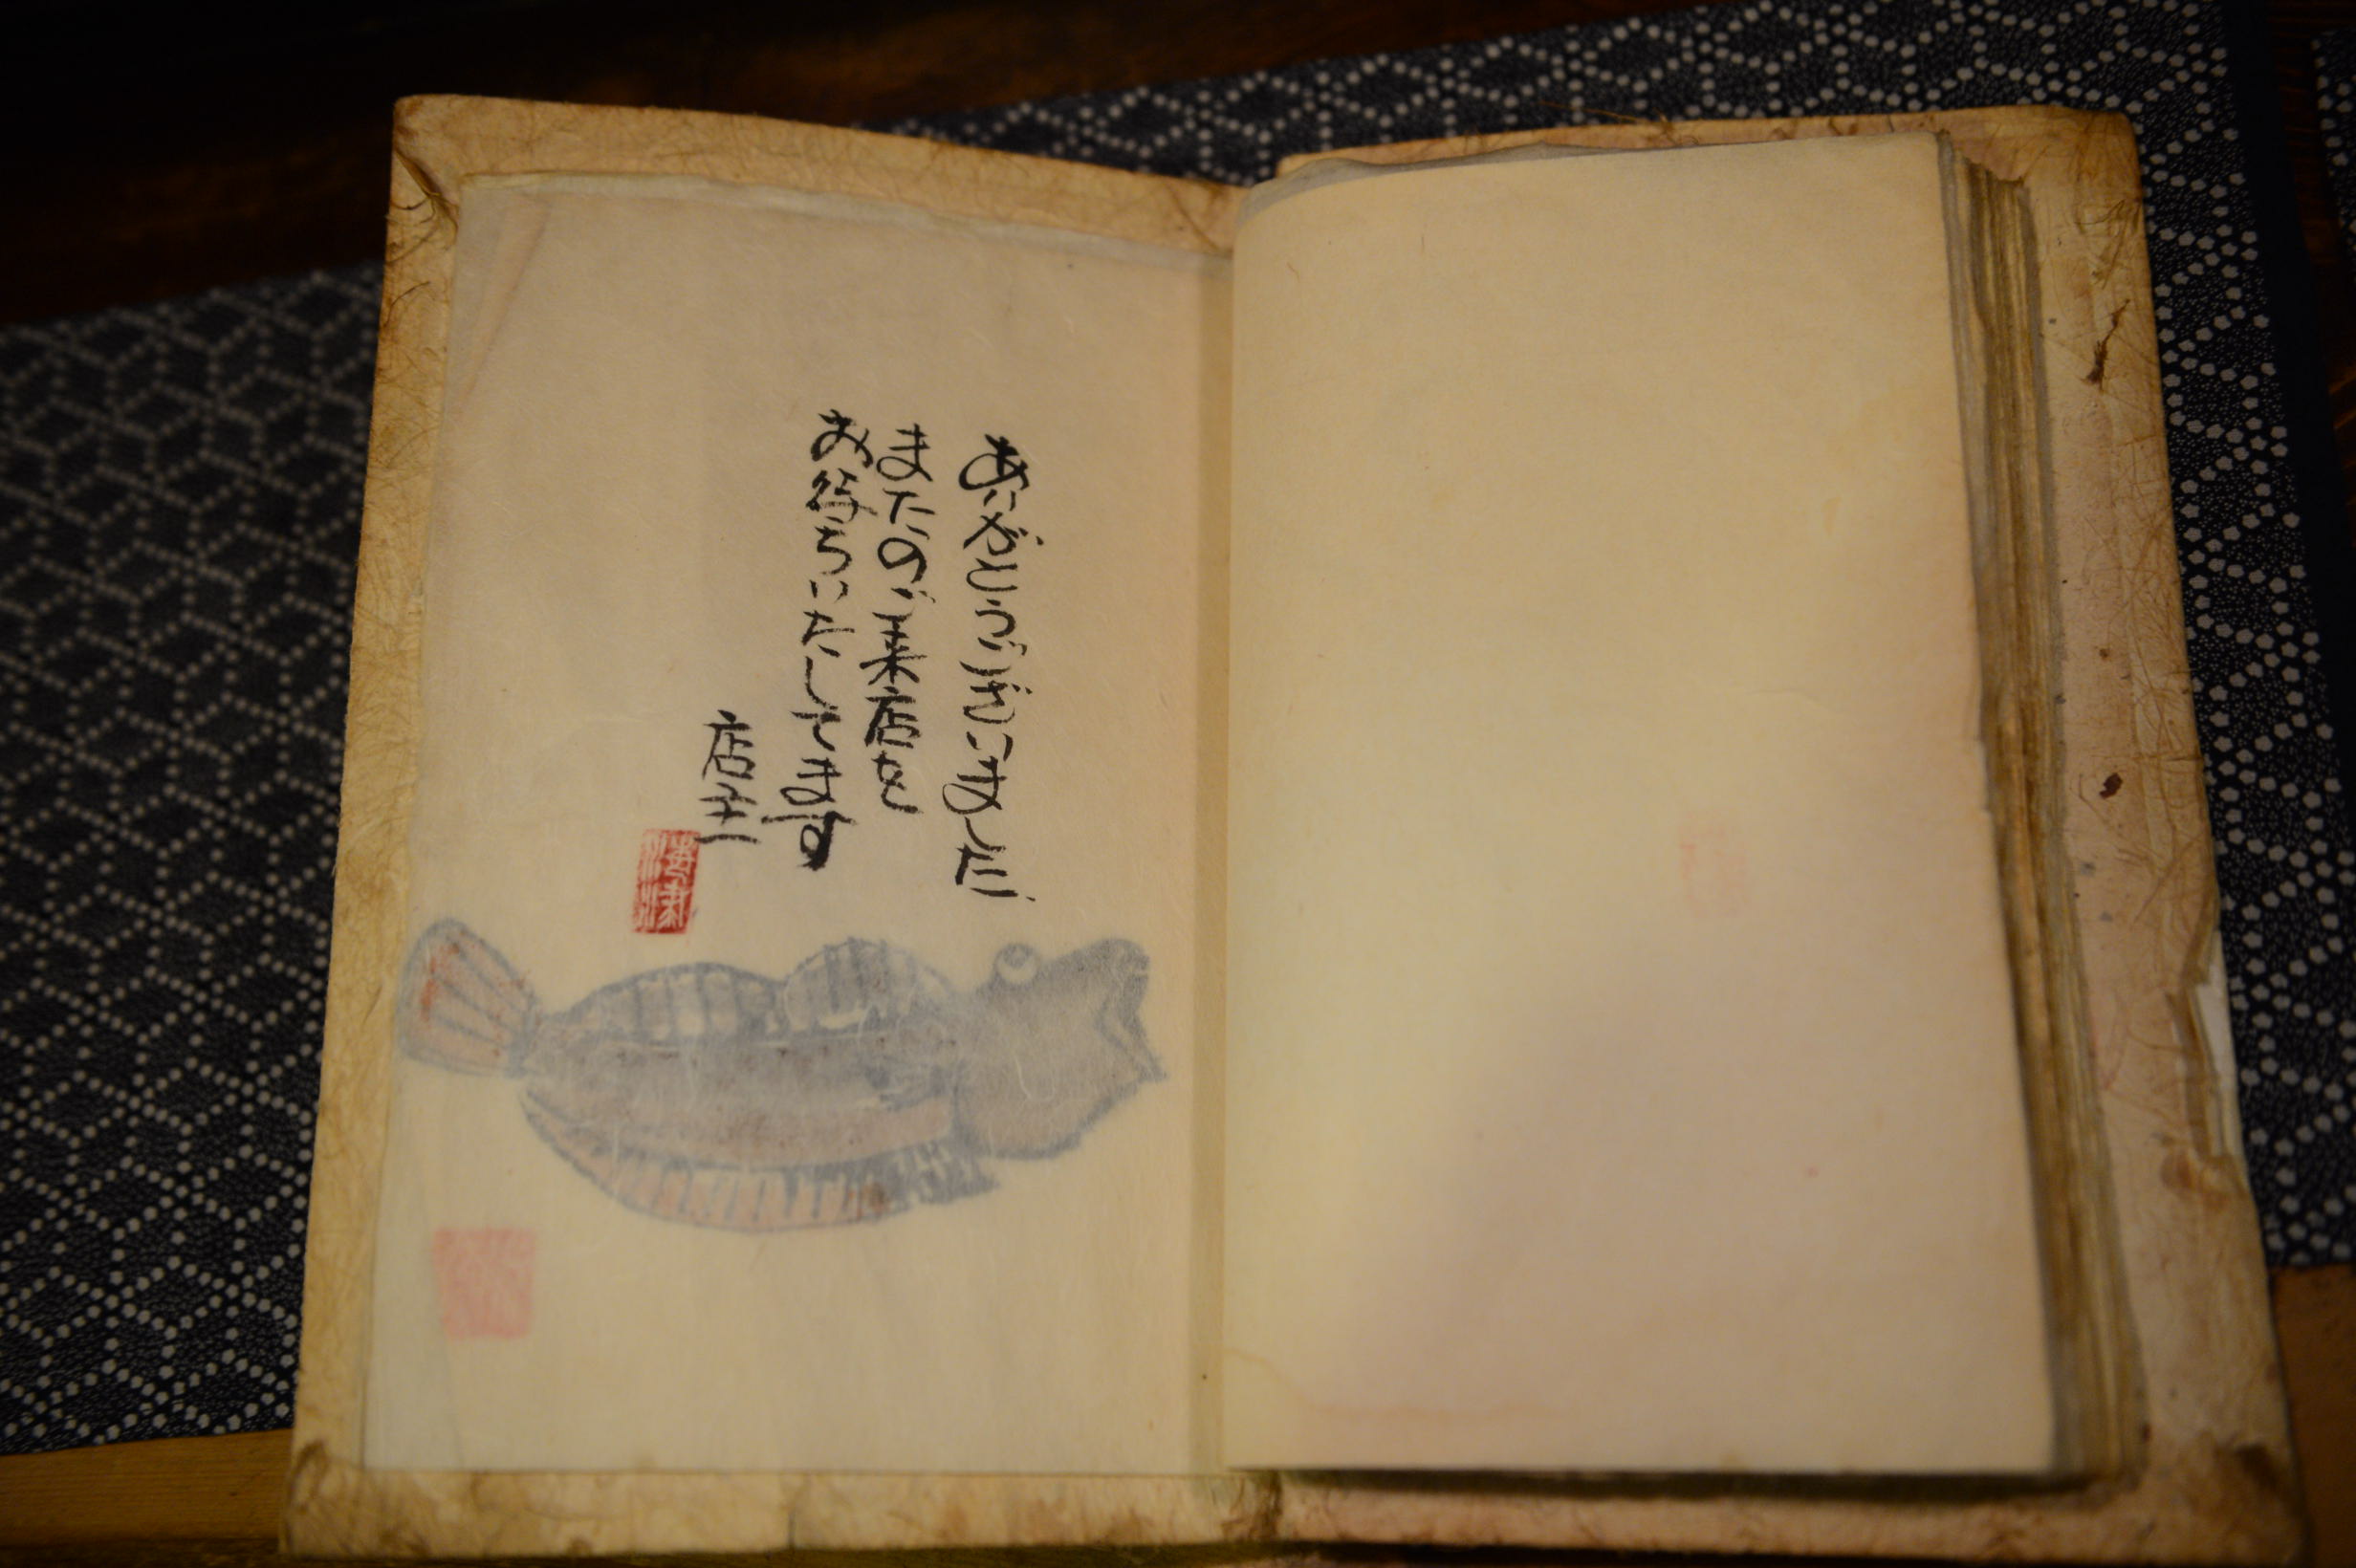 ありがとうございました
またのご来店を
お待ちいたしてます
店主